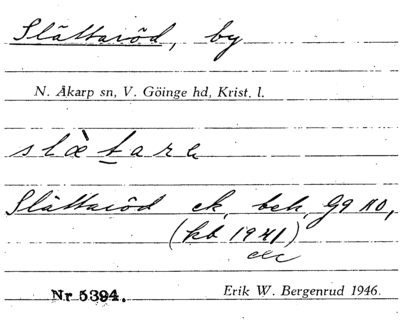 Slättaröd, by
N. Åkarp sn, V. Göinge hd, Krist. l.
slæ̀tarө
Slättaröd ek. bek. Gg 110,
(kb 1941)
Nr 5394. Erik W. Bergenrud 1946.